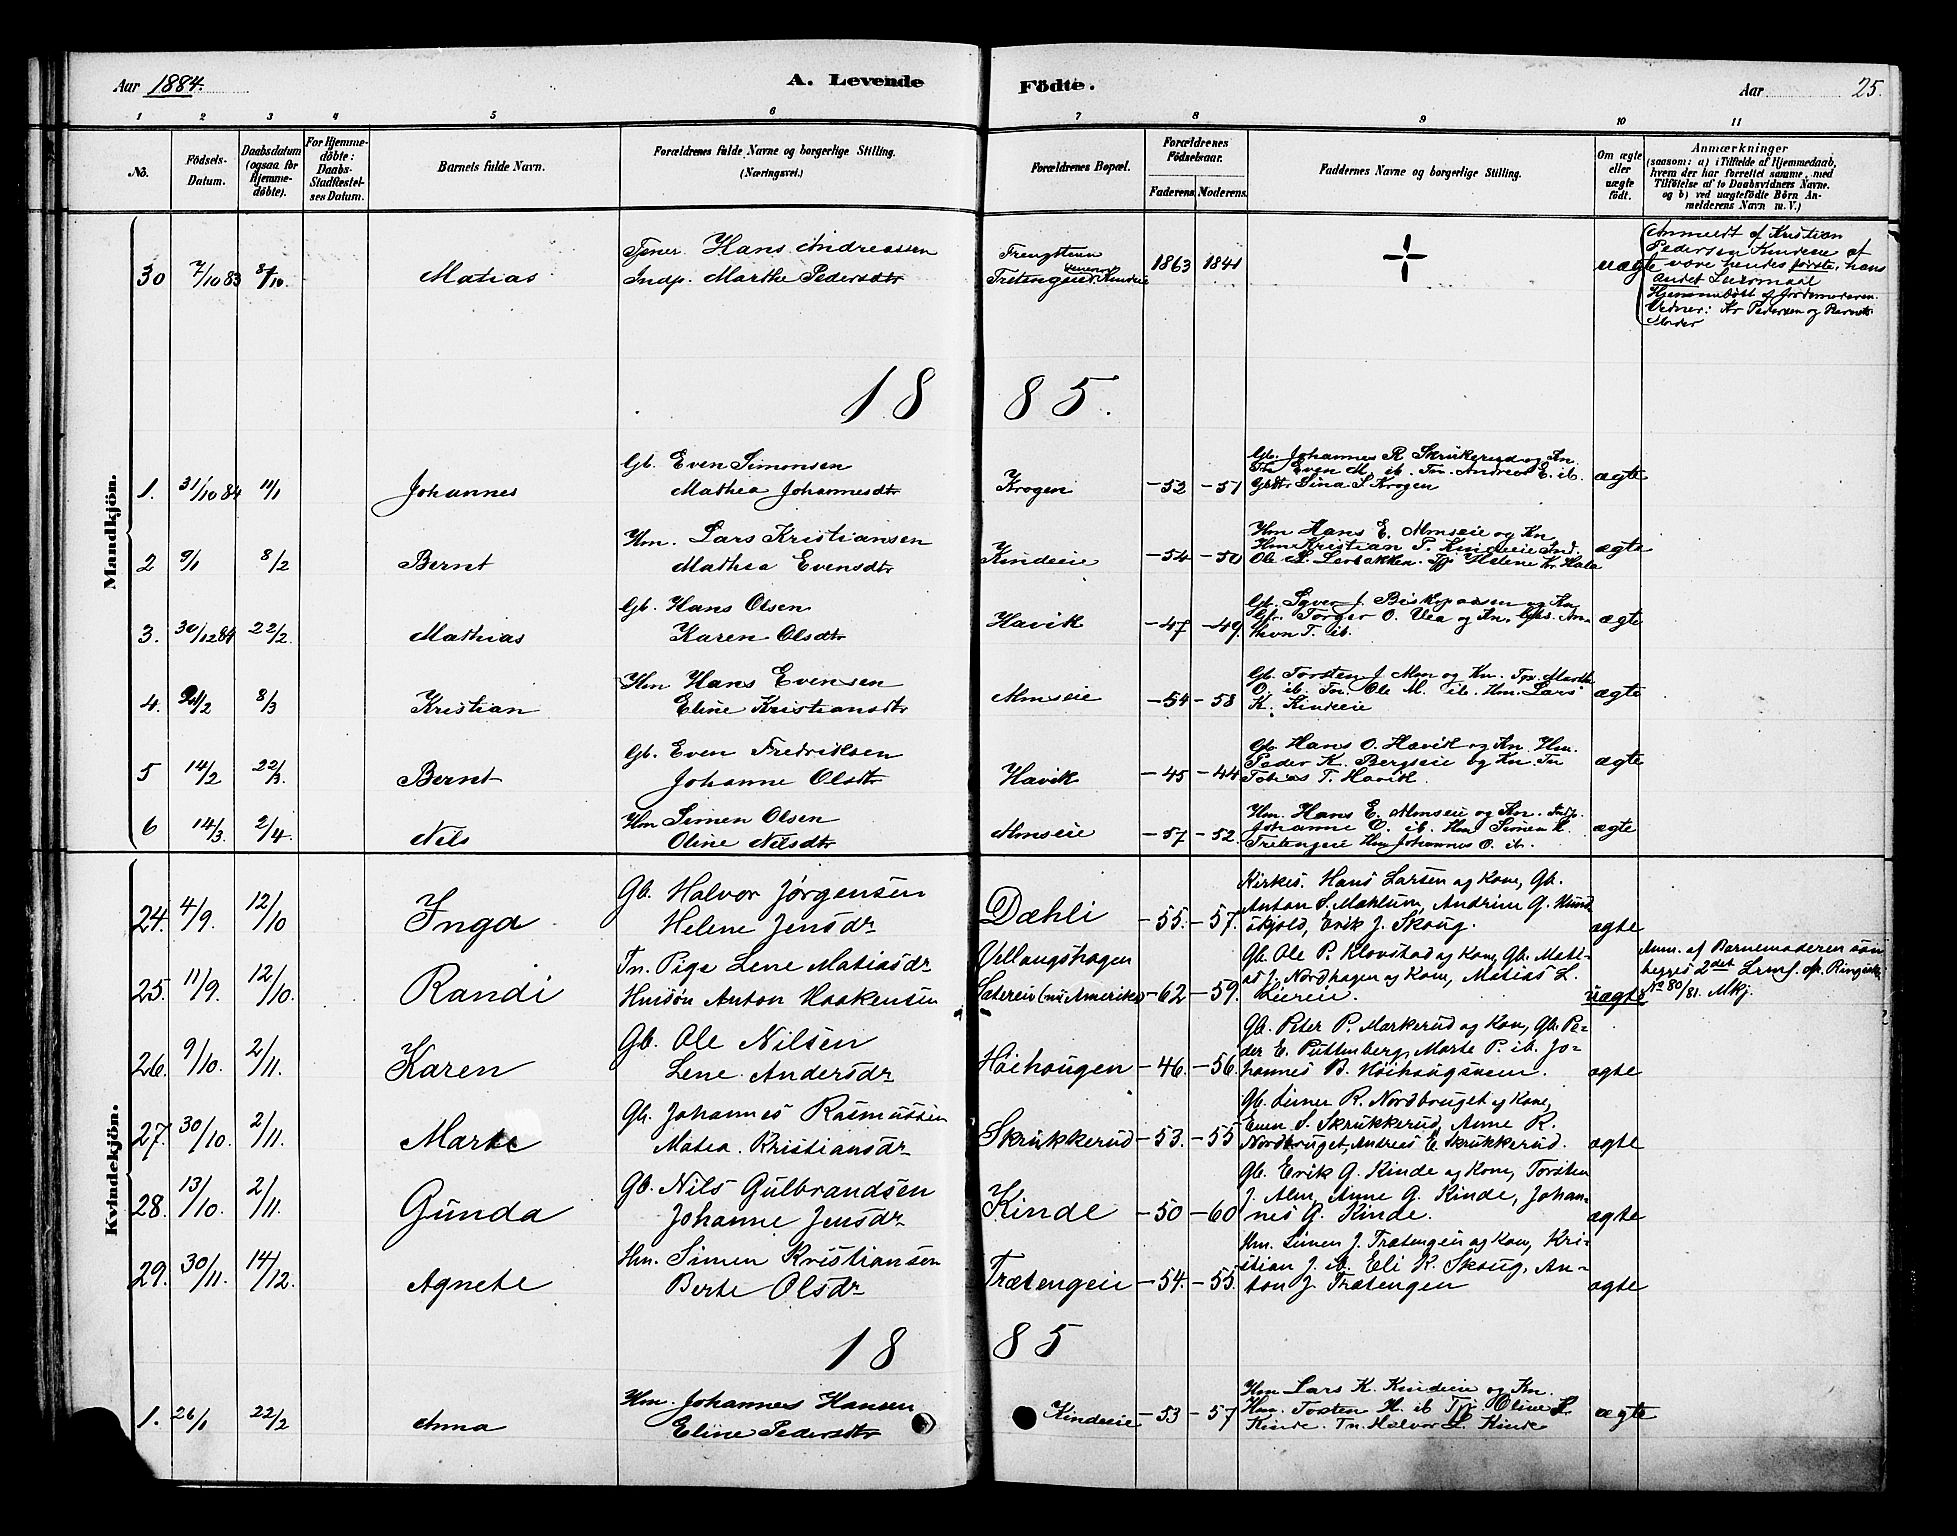 Aar 1884.
A. Levende
Fødte.
Aar
25.
1 2 3 4 5 6 7 8 9 10 11
No.
Fødsels-Datum.
Daabsdatum (ogsaa for Hjemme-døbte).
For Hjemme-døbte: Daabs-Stadfæstel-ses Datum.
Barnets fulde Navn.
Forældrenes fulde Navne og borgerlige Stilling.
(Næringsvei.)
Forældrenes Bopæl.
Forældrenes Fødselsaar.
Faderens. Moderens.
Faddernes Navne og borgerlige Stilling.
Om ægte eller uægte født.
Anmærkninger
(saasom: a) i Tilfælde af Hjemmedaab,
hvem der har forrettet samme, med
Tilføielse af to Daabsvidners Navne.
og b) ved uægtefødte Børn An-
melderens Navn m. V.)
Mandkjön.
30 7/10 83 8/10 Matias
Tjener Hans Andreassen
Indp. Marthe Pedersdtr
1863 1841
uægte
Anmeldt af Kristian
Pedersen Kindeeie at
være hendes første, hans
andet Leiermaal
Hjemmedøbt af Jordmoderen.
Vidner: Kr Pedersen og Barnets
Moder
18 85.
1. 31/10 84 11/1 Johannes
Gb. Even Simonsen
Mathea Johannesdtr
Krogen -52 -51
Gb. Johannes R Skrukerud og Kn.
Tn. Even M. ib. Tn. Andreas E. ib.
Gbdtr Sina S Krogen
ægte
2 9/1 8/2 Bernt
Hm. Lars Kristiansen
Mathea Evensdtr
Kindeeie -54 -50
Hm Hans E. Almseie og Kn
Hm Kristian P. Kindeeie Ind.
Ole L. Lersbakken. Tjp Helene Kr. Hala
ægte
3. 30/12 84 22/2 Mathias
Gb. Hans Olsen
Karen Olsdtr
Havik -47 -49.
Gb. Syver J. Biskopaasen og Kn
Gb. Torger O. Vea og Kn. Gbs. An-
thon T. ib.
ægte
4. 8/3 Kristian
Hm Hans Evensen
Eline Kristiansdtr
Almseie -54 -58
Gb. Torsten J. Alm og Kn. Tp. Marthe
O. ib. Tn. Ole M. ib. Hm. Lars
K. Kindeeie
ægte
5 14/2 22/3. Bernt
Gb. Even Fredriksen
Johanne Olsdtr
Havik -45 -44
Gb. Hans O. Havik og Kn. Hm.
Peder K. Bergseie og Kn. Tn
Tobias T. Havik.
ægte
6 14/3. 2/4. Nils
Hm Simen Olsen
Oline Nilsdtr
Almseie -57 -52.
Hm. Hans E. Almseie og Kn. Indp.
Johanne O. ib. Hm Simen K.
Tretengeie Hm Johannes O. ib.
ægte
Kvindekjön.
24. 4/9. 12/10 Inga
Gb. Halvor Jørgensen
Helene Jensdr
Dæhli -55. -57.
Kirkes. Hans Larsen og Kone, Gb.
Anton S. Mæhlum, Andrine G. Kind
Erik J. Skoug.
ægte
25. 11/9. 12/10. Randi
Tn. Pige Lene Matiasdr
Anton Haakensen
Vellaugshagen
Sætereie (nu Amerika) -62 -59.
Gb. Ole P. Klovstad og Kone, Gb. Matt-
J. Nordhagen og Kone, Matias L.
Liereie.
uægte
Anm. af Barnemoderen som
hegges 2det Lrmf. op. Ringsaker
No 80/81. Mkj.
26. 9/10. 2/11. Karen
Gb. Ole Nilsen
Lene Andersdr
Høihougen -46. -56.
Gb. Peter P. Markerud og Kone, Gb. Pe-
der E. Puttenberg, Marte P. ib. Jo-
hannes B. Høihougsveen.
ægte
27. 30/10. 2/11. Marte
Gb. Johannes Rasmussen
Matea Kristiansdr
Skrukkerud -53. -55
Gb. Simen R. Nordbruget og Kone,
Even S. Skrukkerud, Anne R.
Nordbruget, Andreas E. Skrukkerud.
ægte
28. 13/10. 2/11. Gunda
Gb. Nils Gulbrandsen
Johanne Jensdr
Kinde -50 -60
Gb. Erik G. Kinde og Kone, Torsten
J. Alm, Anne G. Kinde, Johan-
nes G. Kinde.
ægte
29. 30/11. 14/12. Agnete
Hm. Simen Kristiansen
Berte Olsdr
Trætengeie -54. -55.
Hm. Simen J. Trætengeie og Kone, Kri-
stian J. ib. Eli K. Skoug, An-
ton J. Trætengen
ægte
18 85
1. 26/1 22/2 Anna
Hm. Johannes Hansen
Eline Pedersdtr
Kindeeie -53 -57
Hm Lars K. Kindeeie og Kn.
Hm. Tosten H. ib Tp Oline L.
Kinde. Tn. Halvor L. Kinde
ægte